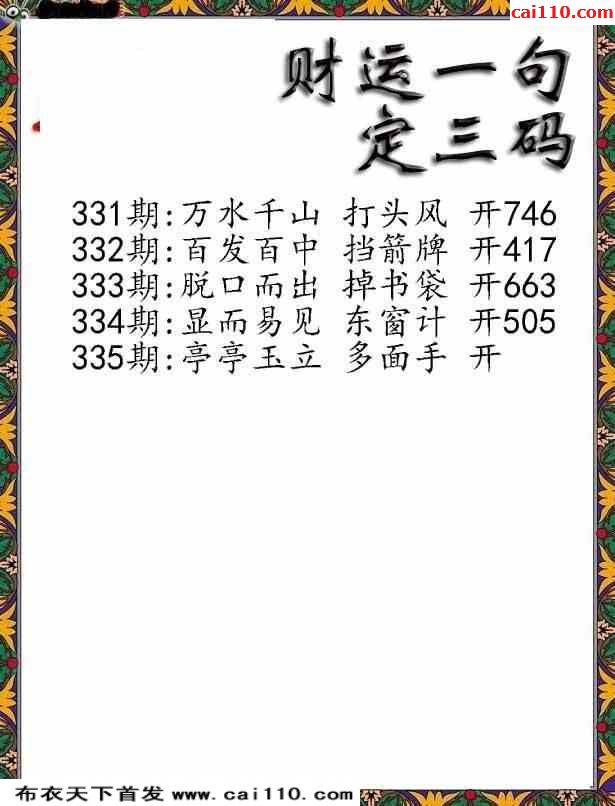 cai110.com
财运一句
定三码
331期:万水千山 打头风 开746
332期:百发百中 挡箭牌 开417
333期:脱口而出 掉书袋 开663
334期:显而易见 东窗计 开505
335期:亭亭玉立 多面手 开
布衣天下首发 www.cai110.com